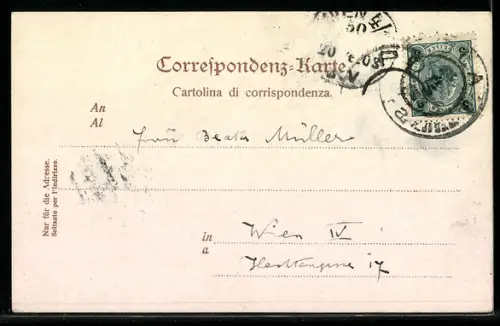 WIEN 4/
50
20 3 03
Correspondenz-Karte.
Cartolina di corrispondenza.
An
Al
Frau Beata Müller
Nur für die Adresse.
Soltanto per l'indirizzo.
in
a
Wien IV
17